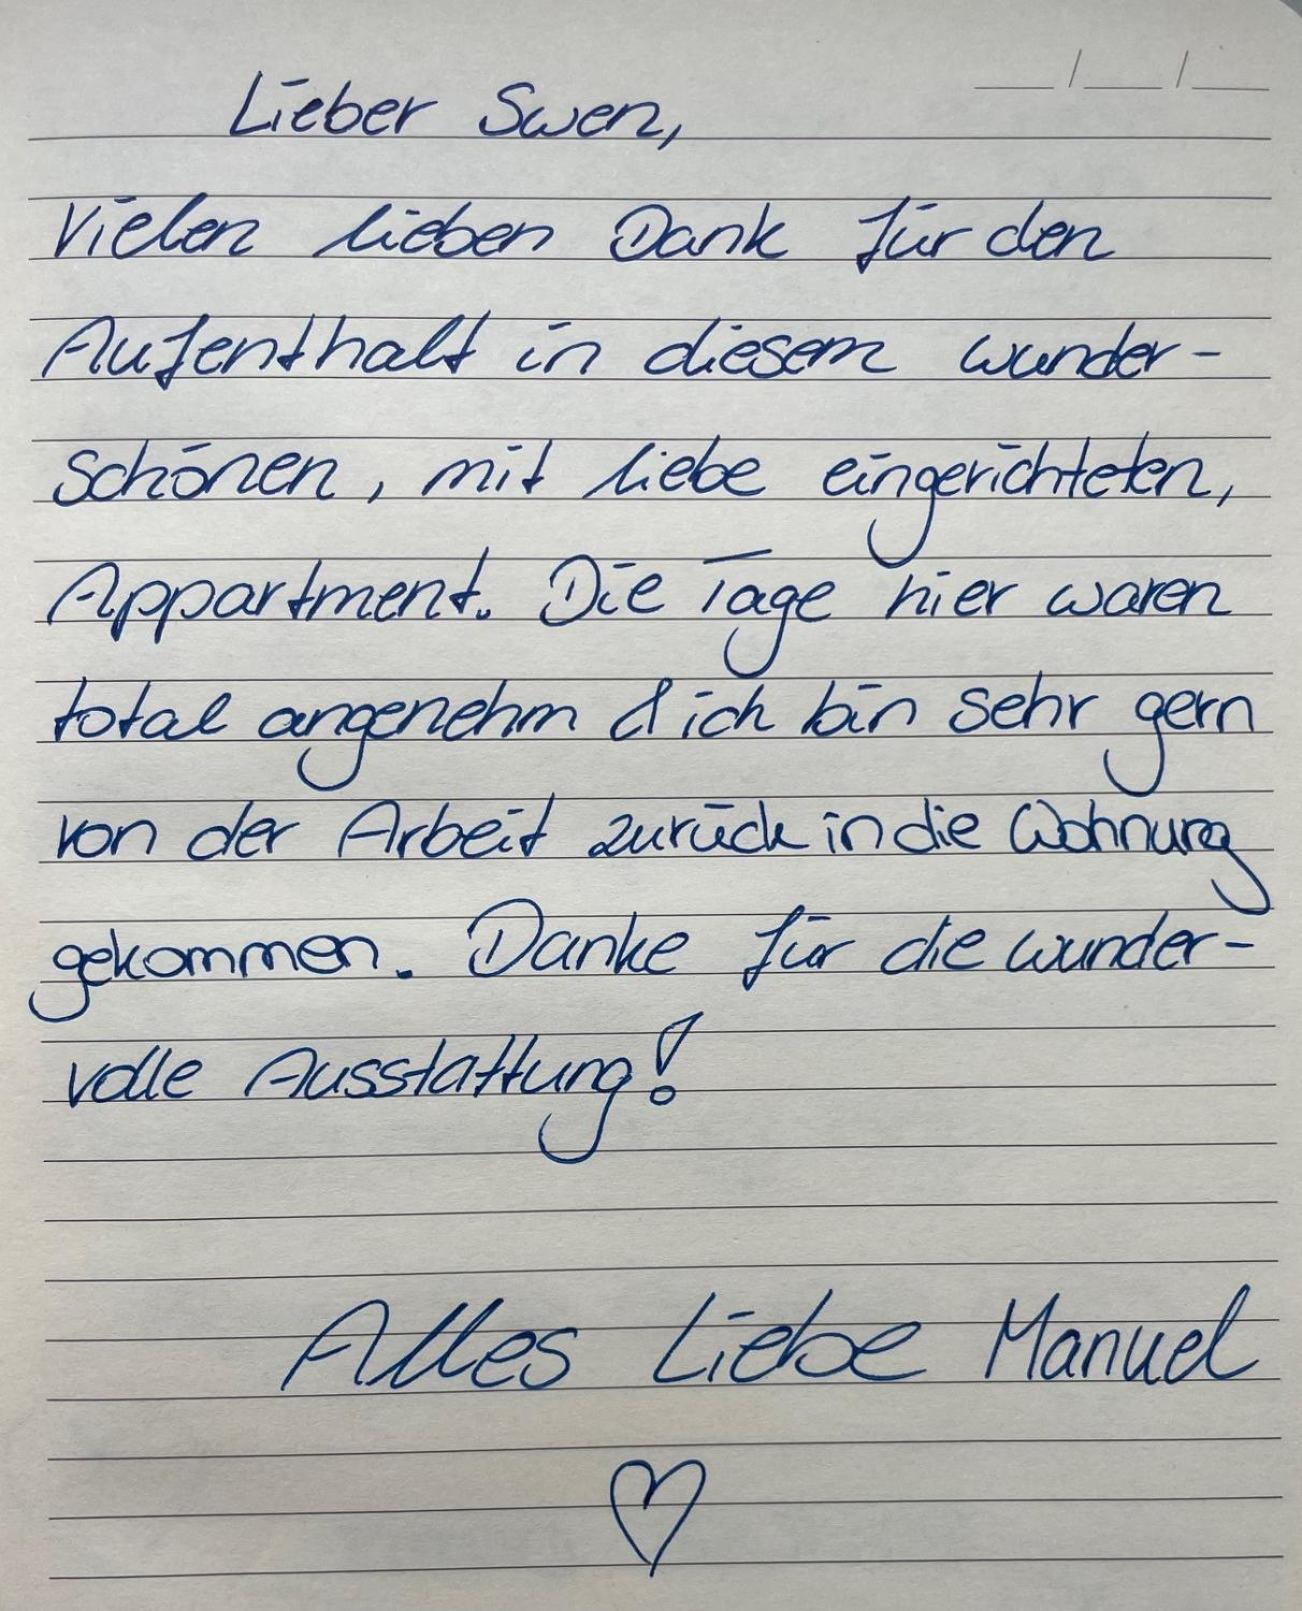 Lieber Swen,
Vielen lieben Dank für den
Aufenthalt in diesem wunder-
schönen, mit liebe eingerichteten,
Appartment. Die Tage hier waren
total angenehm & ich bin sehr gern
von der Arbeit zurück in die Wohnung
gekommen. Danke für die wunder-
volle Ausstattung!
Alles Liebe Manuel